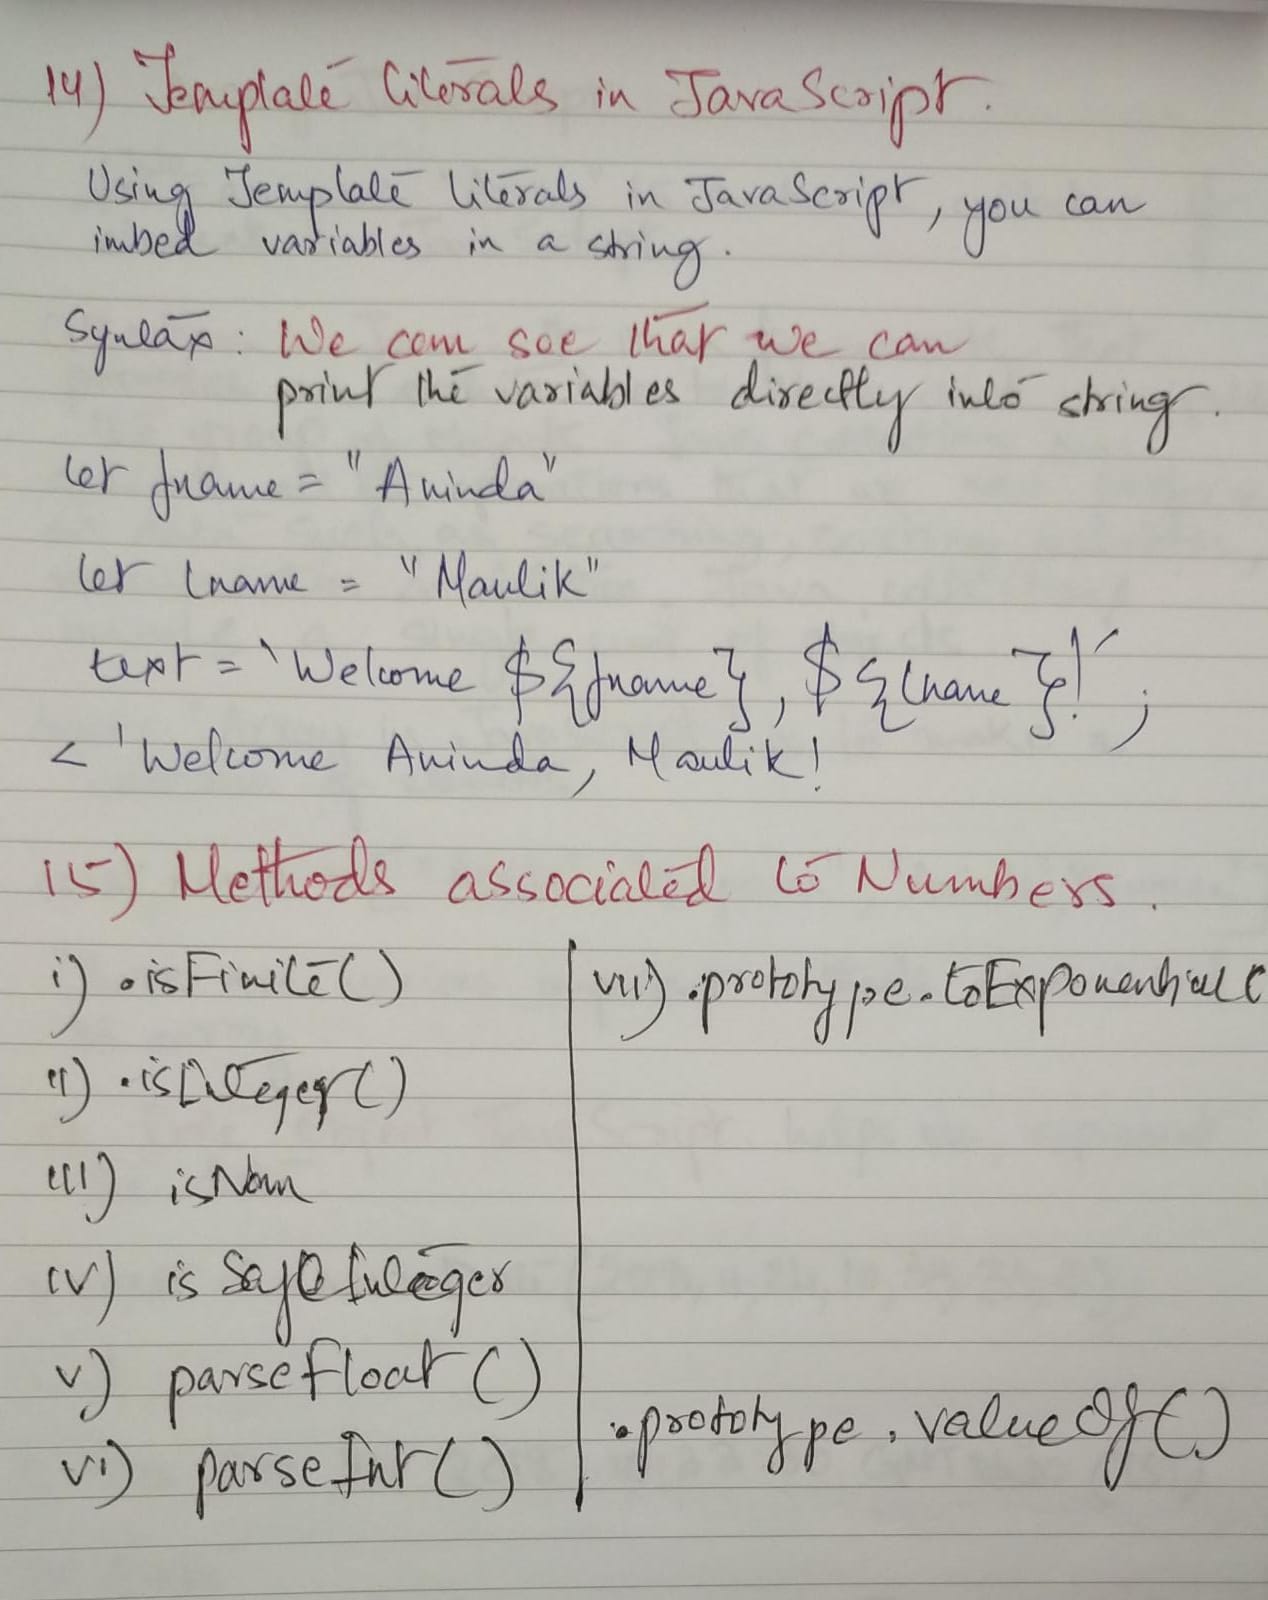 14) Template literals in JavaScript.
Using Template literals in JavaScript, you can
imbed variables in a string.
Syntax: We can see that we can
print the variables directly into string.
let fname = "Aninda"
let lname = "Maulik"
text = `Welcome ${fname}, ${lname}!`;
< 'Welcome Aninda, Maulik!
15) Methods associated to Numbers.
i) .isFinite()
ii) .isInteger()
iii) isNan
iv) is SafeInteger
v) parsefloat()
vi) parseInt()
vii) .prototype.toExponential(
.prototype.valueOf()